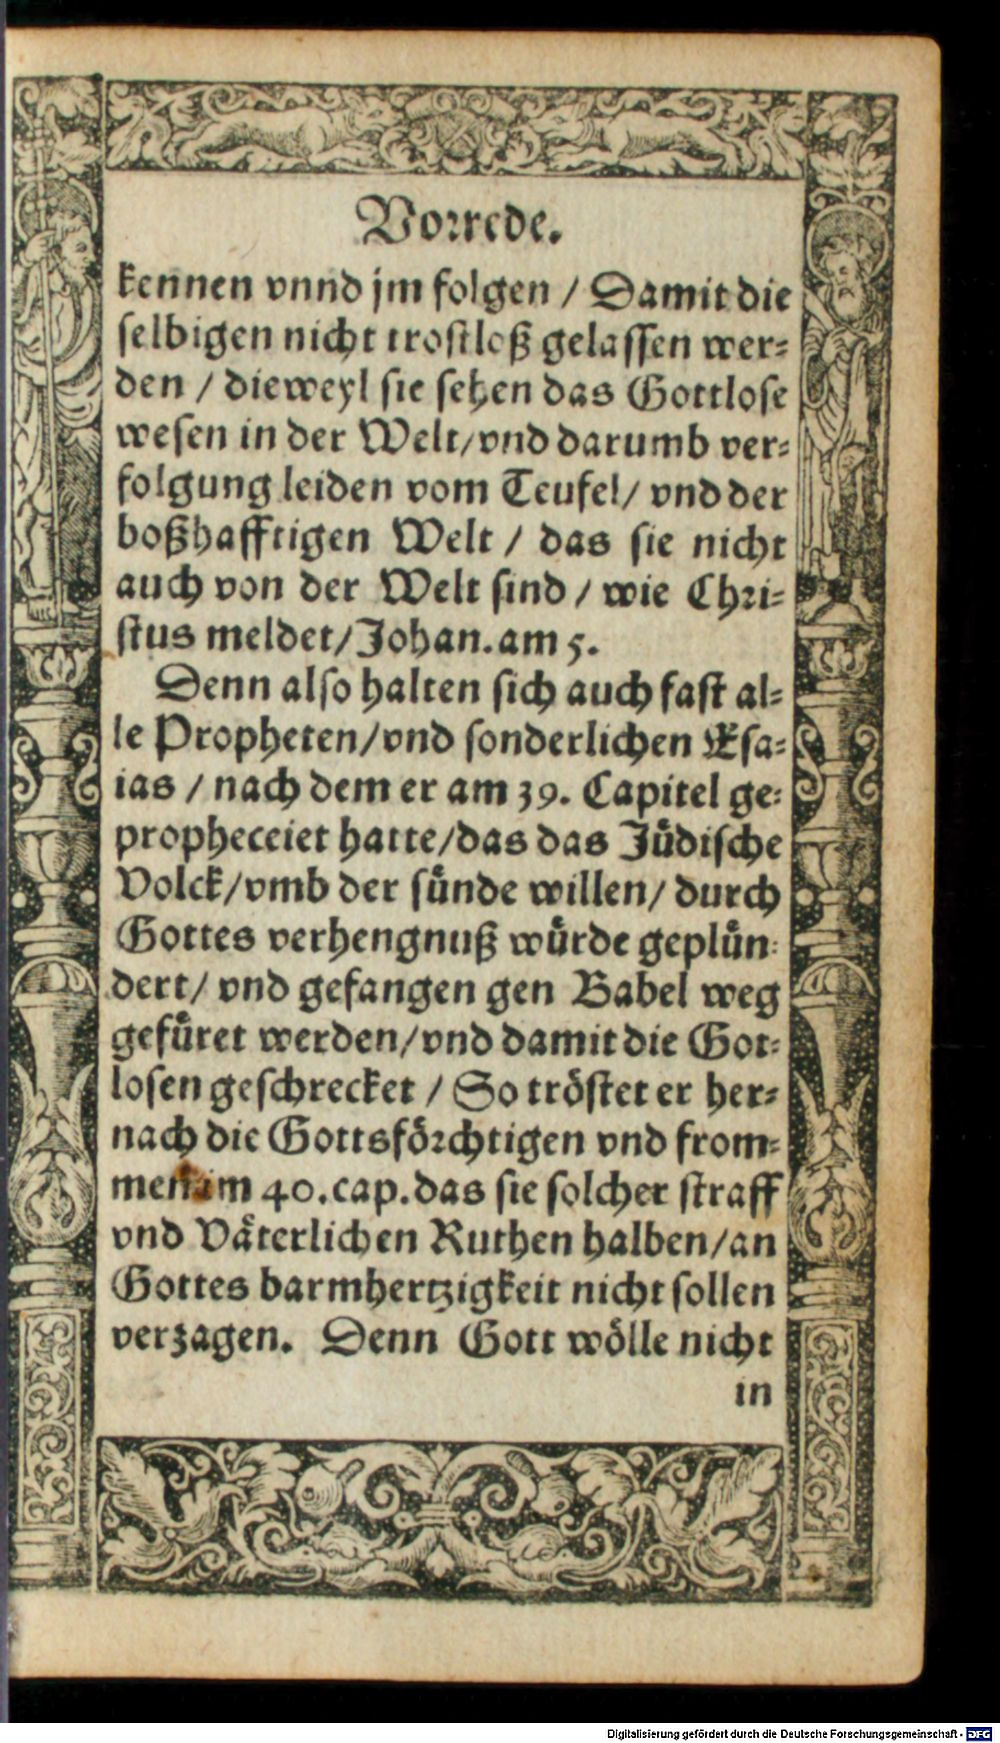 Vorrede.
kennen vnnd jm folgen / Damit die
selbigen nicht trostloß gelassen wer=
den / dieweyl sie sehen das Gottlose
wesen in der Welt/vnd darumb ver=
folgung leiden vom Teufel/ vnd der
boßhafftigen Welt / das sie nicht
auch von der Welt sind / wie Chri=
stus meldet/Johan. am 5.
Denn also halten sich auch fast al=
le Propheten/vnd sonderlichen Esa=
ias / nach dem er am 39. Capitel ge=
propheceiet hatte/das das Jüdische
Volck/vmb der sünde willen/ durch
Gottes verhengnuß würde geplün=
dert/ vnd gefangen gen Babel weg
gefüret werden/vnd damit die Got=
losen geschrecket / So tröstet er her=
nach die Gottsförchtigen vnd from=
men im 40. cap. das sie solcher straff
vnd Väterlichen Ruthen halben/an
Gottes barmhertzigkeit nicht sollen
verzagen. Denn Gott wölle nicht
in
Digitalisierung gefördert durch die Deutsche Forschungsgemeinschaft - DFG